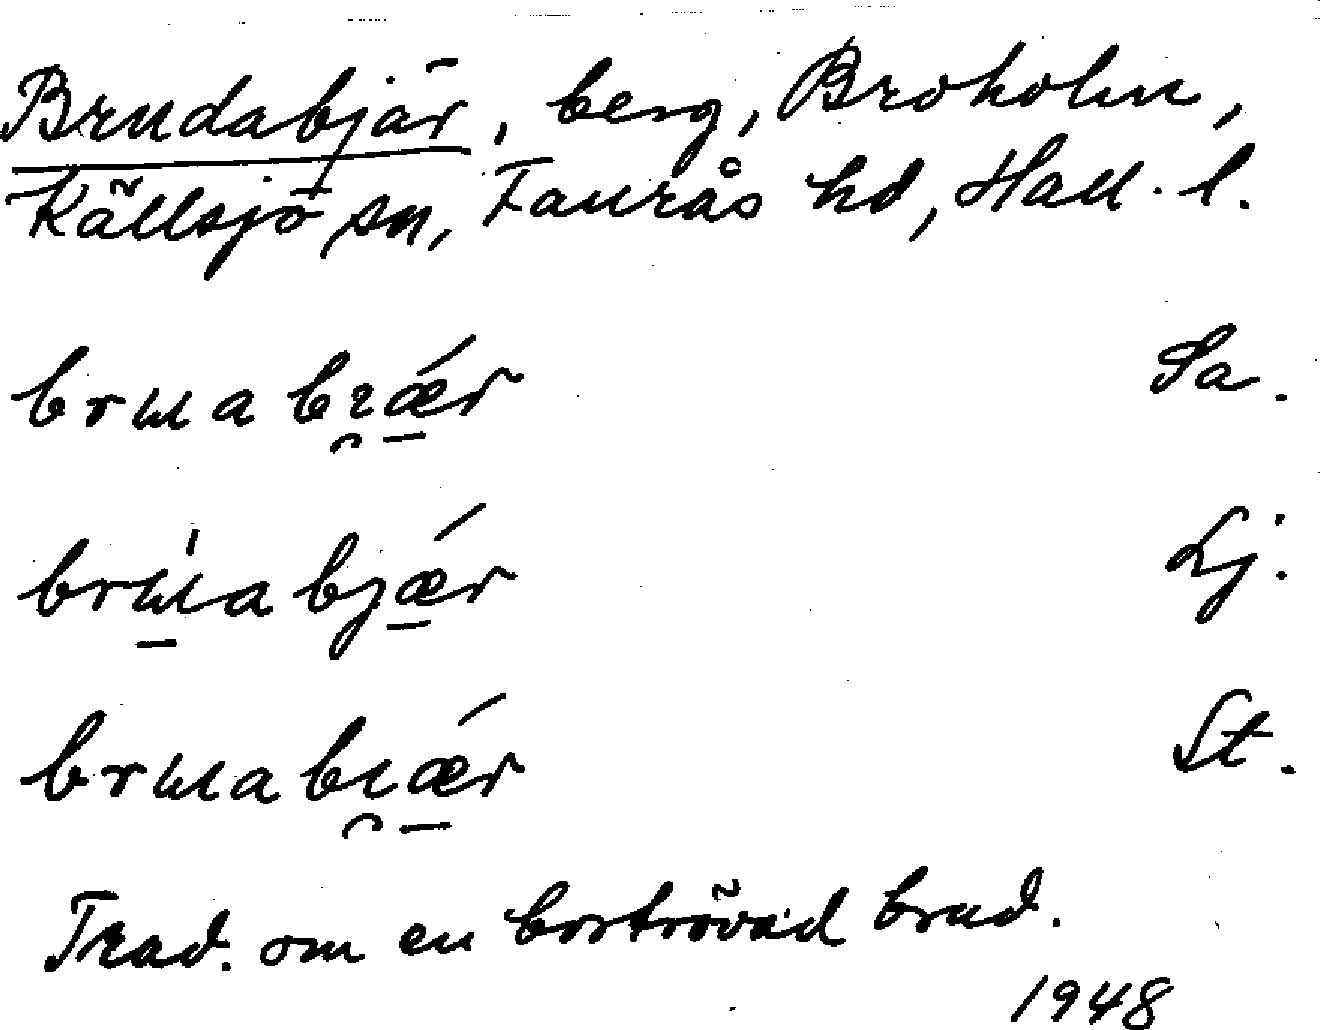 Brudabjär, berg, Broholm,
Källsjö sn, Faurås hd, Hall. l.
brɯabɪ̯ǽ̠r Sa.
brɯ̠̍abjǽ̠r Lj.
brɯabɪ̯ǽ̠r St.
Trad. om en bortrövad brud.
1948